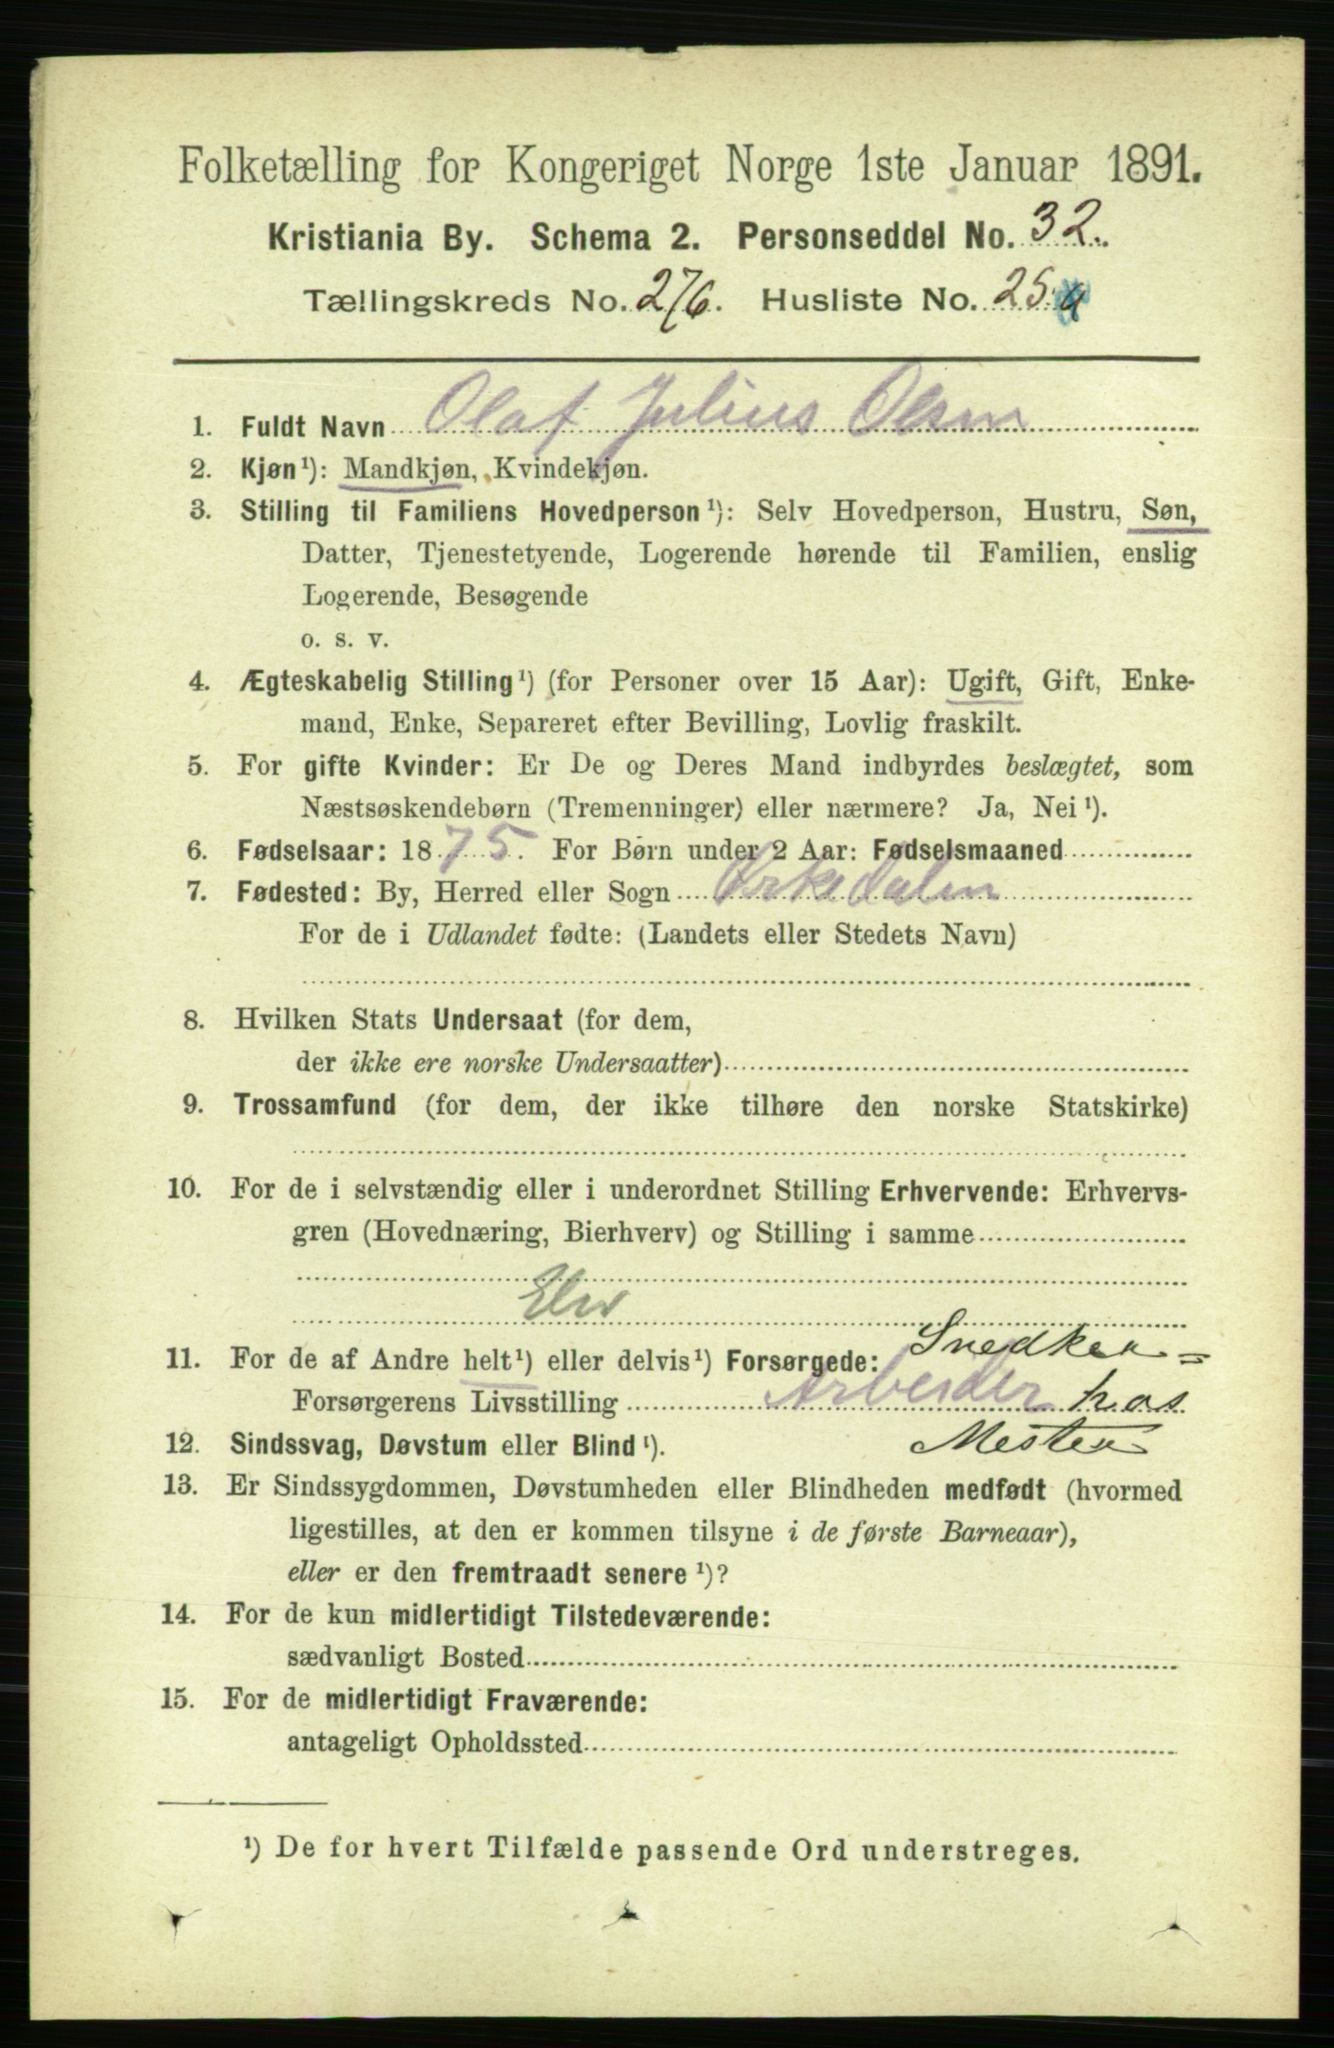 Folketælling for Kongeriget Norge 1ste Januar 1891.
Kristiania By. Schema 2. Personseddel No. 32.
Tællingskreds No. 276. Husliste No. 25 a
1. Fuldt Navn Olaf Julius Olsen
2. Kjøn¹): Mandkjøn, Kvindekjøn.
3. Stilling til Familiens Hovedperson¹): Selv Hovedperson, Hustru, Søn,
Datter, Tjenestetyende, Logerende hørende til Familien, enslig
Logerende, Besøgende
o. s. v.
4. Ægteskabelig Stilling¹) (for Personer over 15 Aar): Ugift, Gift, Enke-
mand, Enke, Separeret efter Bevilling, Lovlig fraskilt.
5. For gifte Kvinder: Er De og Deres Mand indbyrdes beslægtet, som
Næstsøskendebørn (Tremenninger) eller nærmere? Ja, Nei¹).
6. Fødselsaar: 1875. For Børn under 2 Aar: Fødselsmaaned
7. Fødested: By, Herred eller Sogn Ørkedalen
For de i Udlandet fødte: (Landets eller Stedets Navn)
8. Hvilken Stats Undersaat (for dem,
der ikke ere norske Undersaatter)
9. Trossamfund (for dem, der ikke tilhøre den norske Statskirke)
10. For de i selvstændig eller i underordnet Stilling Erhvervende: Erhvervs-
gren (Hovednæring, Bierhverv) og Stilling i samme
Elev
11. For de af Andre helt¹) eller delvis¹) Forsørgede: Snedker=
Forsørgerens Livsstilling Arbeider hos
12. Sindssvag, Døvstum eller Blind¹). Mester
13. Er Sindssygdommen, Døvstumheden eller Blindheden medfødt (hvormed
ligestilles, at den er kommen tilsyne i de første Barneaar),
eller er den fremtraadt senere¹)?
14. For de kun midlertidigt Tilstedeværende:
sædvanligt Bosted
15. For de midlertidigt Fraværende:
antageligt Opholdssted
¹) De for hvert Tilfælde passende Ord understreges.